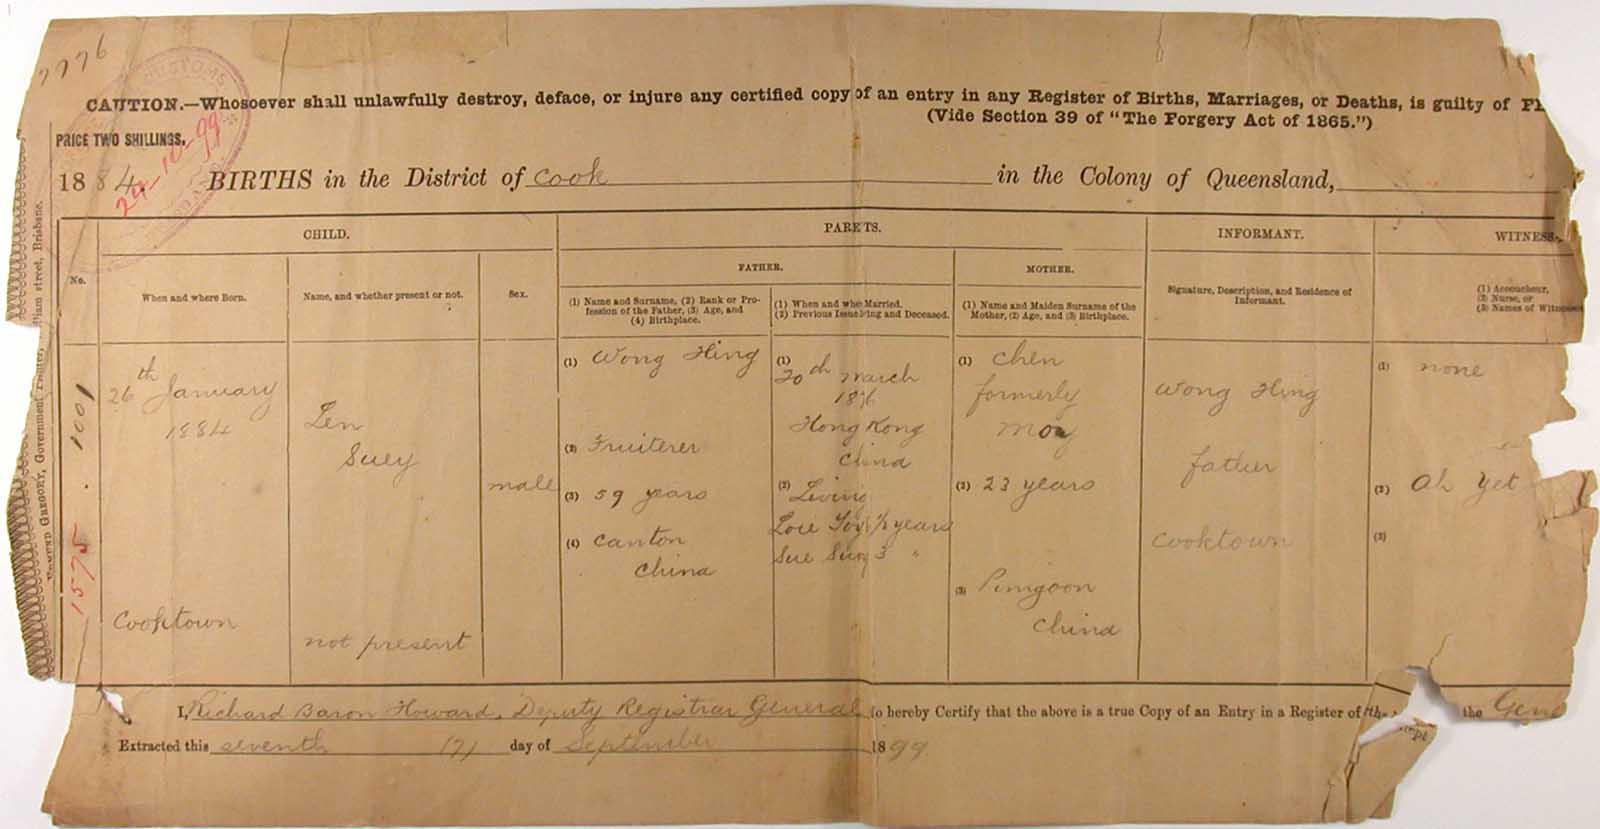 7776
CUSTOMS
24-10-99
CAUTION.—Whosoever shall unlawfully destroy, deface, or injure any certified copy of an entry in any Register of Births, Marriages, or Deaths, is guilty of
(Vide Section 39 of "The Forgery Act of 1865.")
PRICE TWO SHILLINGS.
1884. BIRTHS in the District of Cook in the Colony of Queensland,
EDMUND GREGORY, Government Printer, William street, Brisbane.
CHILD.
PARENTS.
INFORMANT.
WITNESS
No.
FATHER.
MOTHER.
When and where Born.
Name, and whether present or not.
Sex.
(1) Name and Surname, (2) Rank or Pro-
fession of the Father, (3) Age, and
(4) Birthplace.
(1) When and where Married.
(2) Previous Issue living and Deceased.
(1) Name and Maiden Surname of the
Mother, (2) Age, and (3) Birthplace.
Signature, Description, and Residence of
Informant.
(1) Accoucheur,
(2) Nurse, or
(3) Names of Witnesses
1001
1575
26th January
1884
Cooktown
Len
Suey
not present
male
(1) Wong Hing
(2) Fruiterer
(3) 59 years
(4) Canton
China
(1)
March
Hong Kong
China
(2) Living
years
Sue 3 "
(1) Chen
formerly
Moy
(2) 23 years
(3)
China
Wong Hing
father
Cooktown
(1) none
(2) Ah Yet
(3)
I, Richard Baron Howard, Deputy Registrar General do hereby Certify that the above is a true Copy of an Entry in a Register of the
Extracted this seventh (7) day of September 1899.